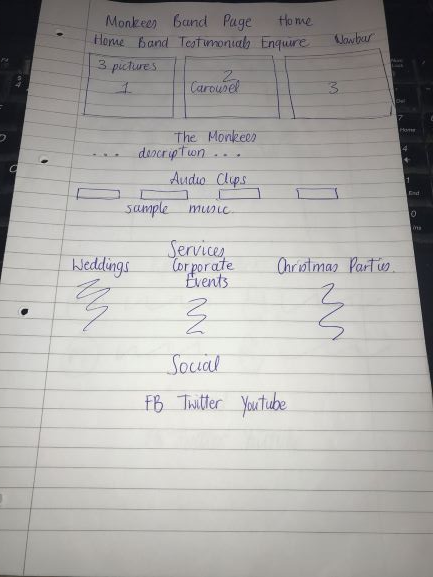 Monkees Band Page Home
Home Band Testimonials Enquire Navbar
3 pictures
1
2
Carousel
3
The Monkees
... description ...
Audio Clips
sample music.
Services
Weddings
Corporate
Events
Christmas Parties.
Social
FB Twitter Youtube